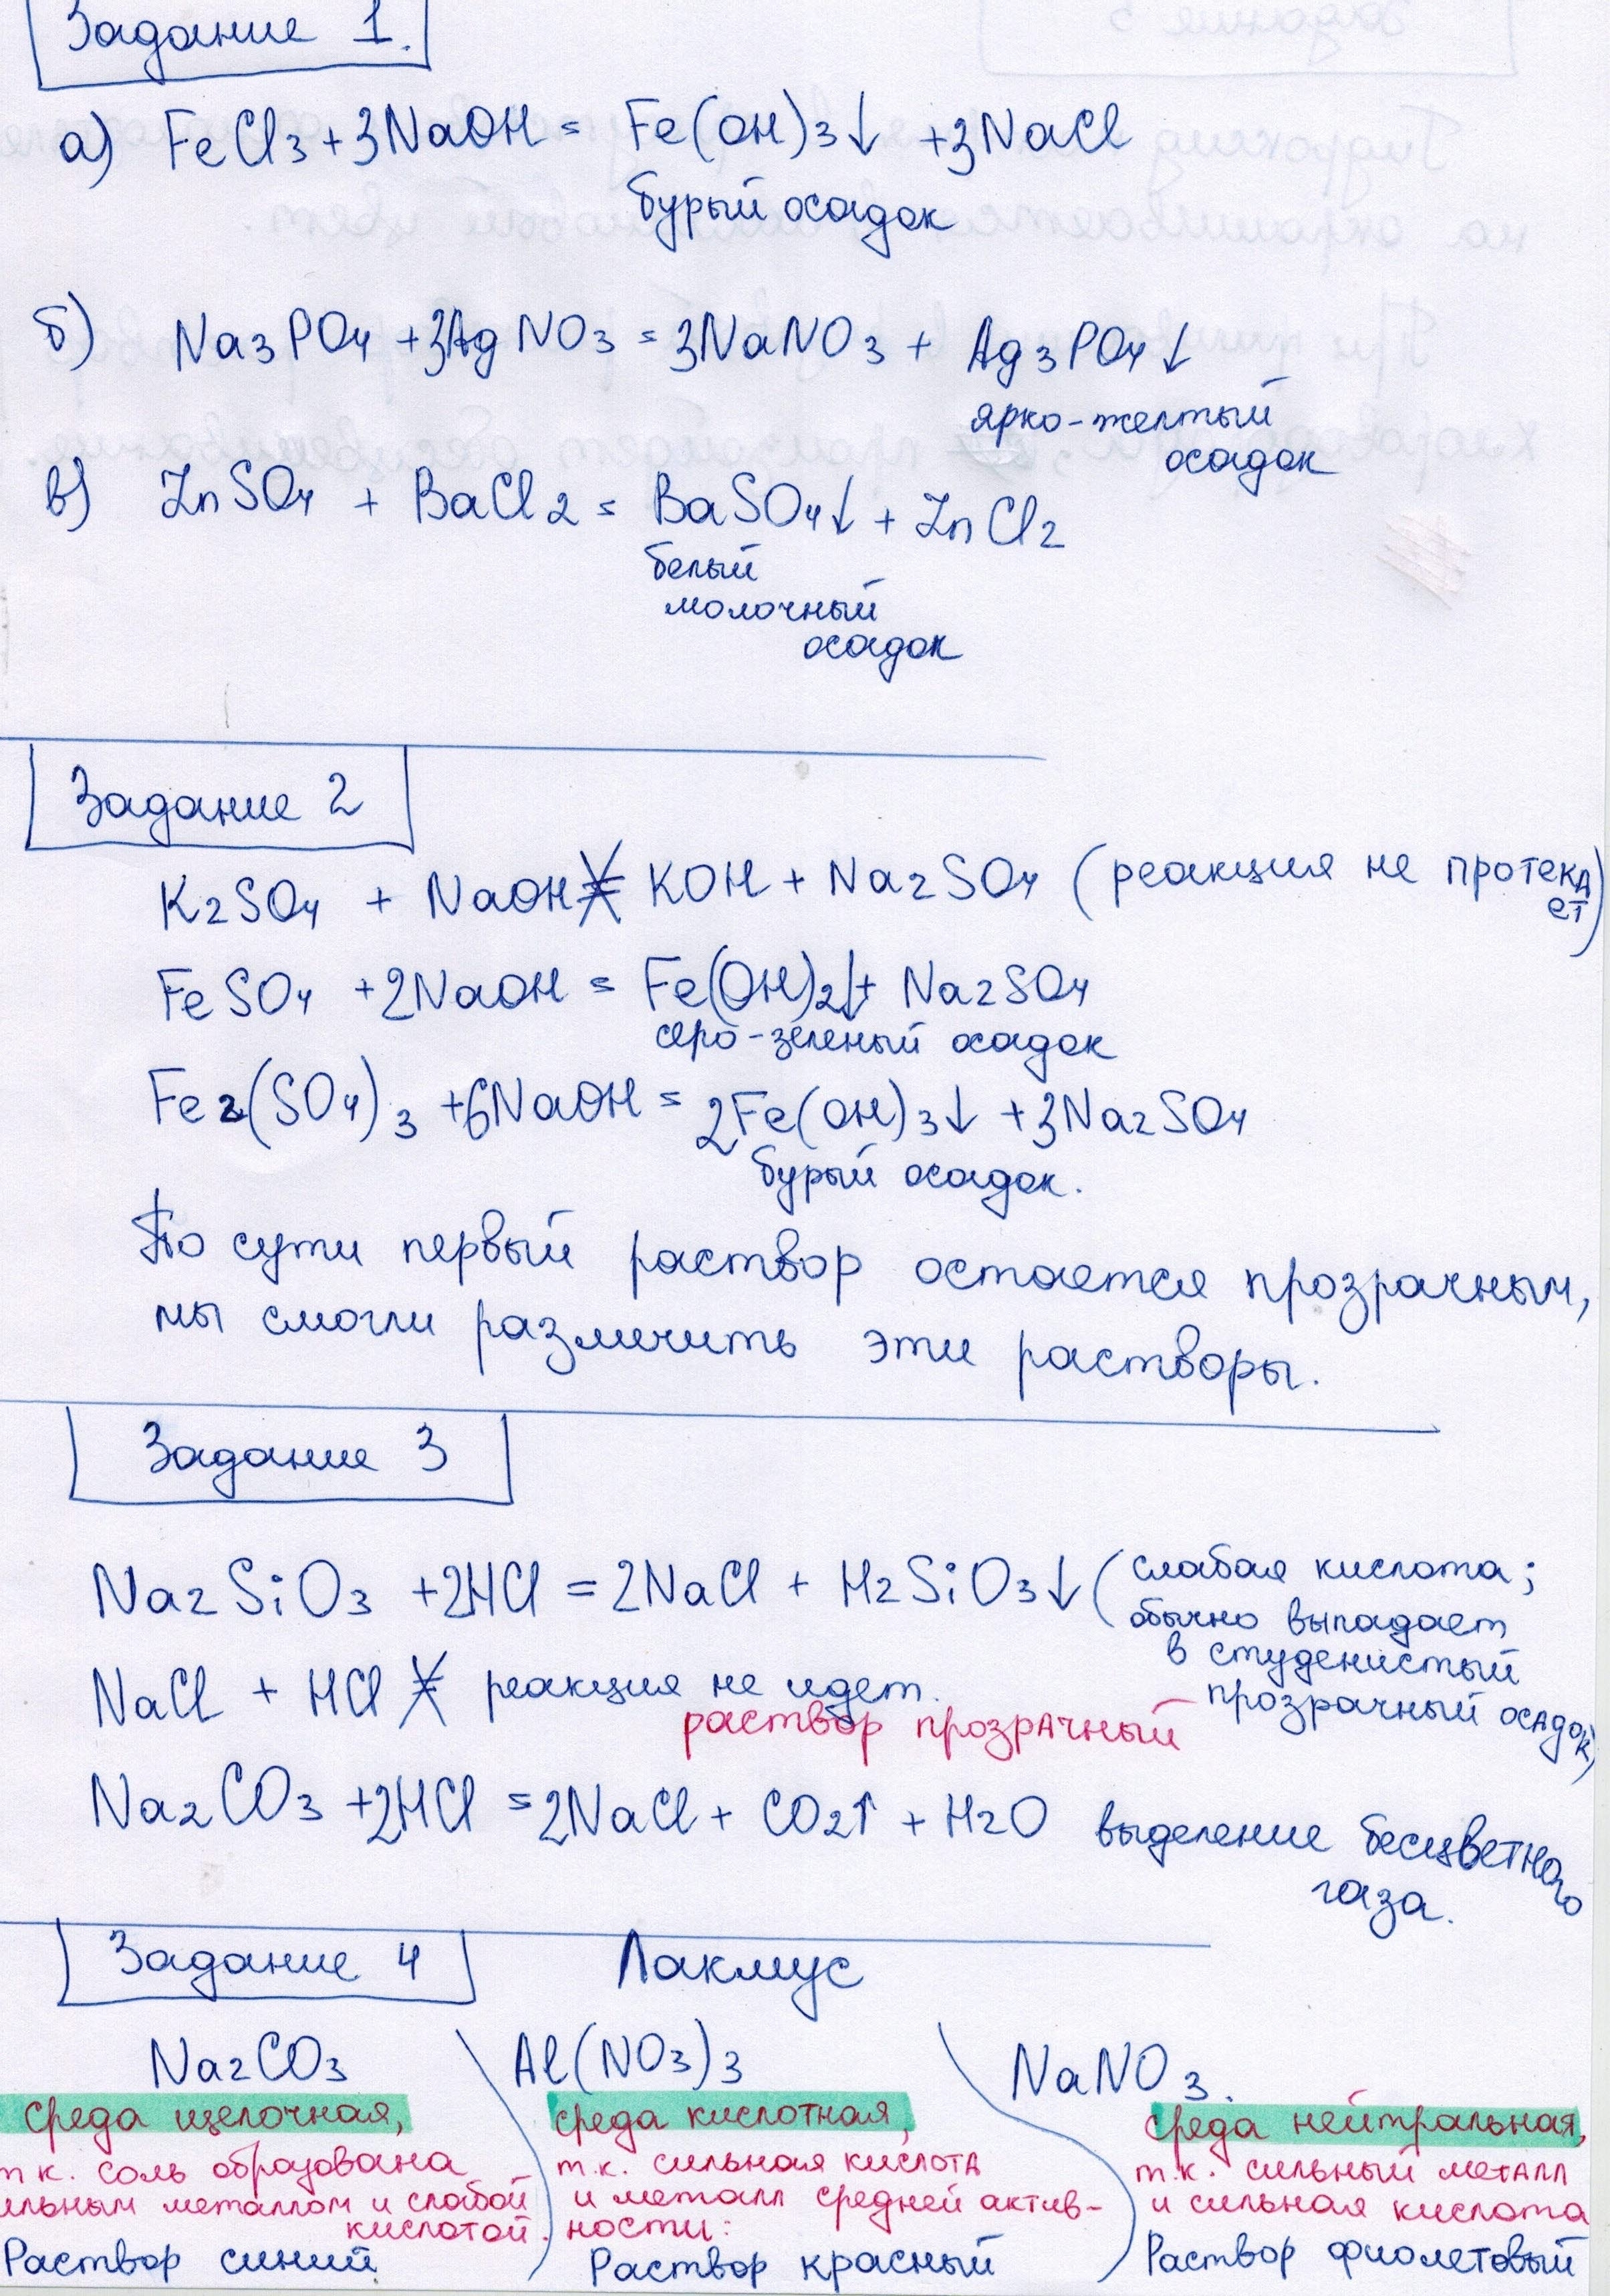 Задание 1.
а) FeCl3 + 3NaOH = Fe(OH)3↓ + 3NaCl
бурый осадок
б) Na3PO4 + 3AgNO3 = 3NaNO3 + Ag3PO4↓
ярко-желтый
осадок
в) ZnSO4 + BaCl2 = BaSO4↓ + ZnCl2
белый
молочный
осадок
Задание 2
K2SO4 + NaOH ≠ KOH + Na2SO4 (реакция не протека
ет)
FeSO4 + 2NaOH = Fe(OH)2↓ + Na2SO4
серо-зеленый осадок
Fe2(SO4)3 + 6NaOH = 2Fe(OH)3↓ + 3Na2SO4
бурый осадок.
По сути первый раствор остается прозрачным,
мы смогли различить эти растворы.
Задание 3
Na2SiO3 + 2HCl = 2NaCl + H2SiO3↓ (слабая кислота;
обычно выпадает
в студенистый
прозрачный осадок)
NaCl + HCl ≠ реакция не идет.
раствор прозрачный
Na2CO3 + 2HCl = 2NaCl + CO2↑ + H2O выделение бесцветного
газа.
Задание 4 Лакмус
Na2CO3
среда щелочная,
т к. соль образована
ильным металлом и слабой
кислотой.
Раствор синий
Al(NO3)3
среда кислотная,
т.к. сильная кислота
и металл средней актив-
ности:
Раствор красный
NaNO3.
среда нейтральная,
т.к. сильный металл
и сильная кислота
Раствор фиолетовый